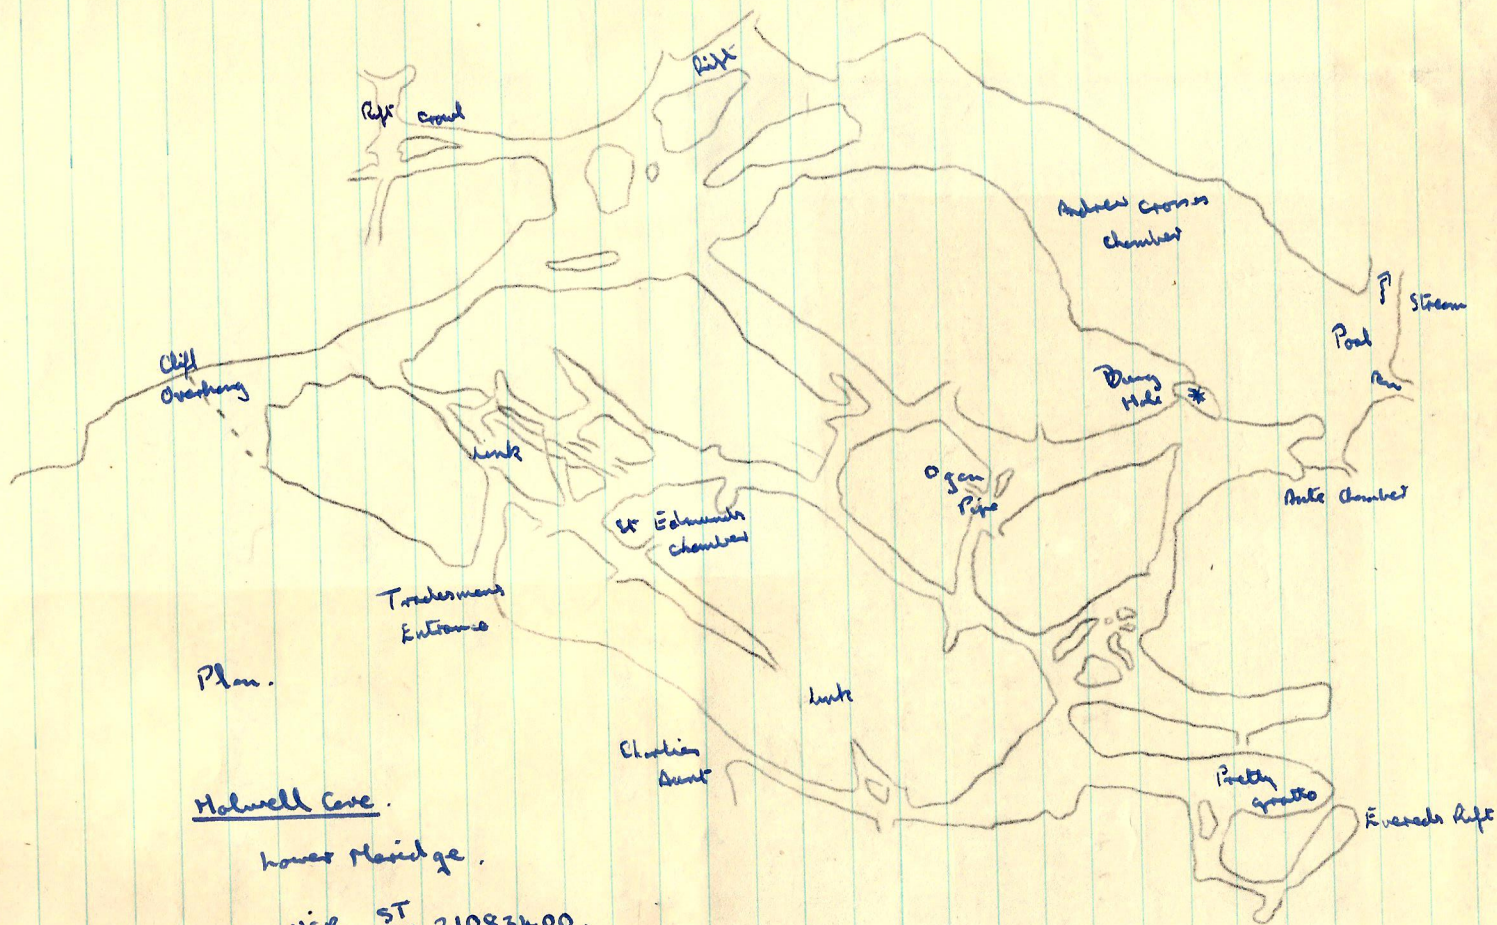 Rift
Rift Crawl
Andrew Crosses
Chamber
Stream
Pool
Cliff
Overhang
Dung
Hole
*
Link
Ogan
Pipe
Ante Chamber
St Edmunds
Chamber
Tradesmans
Entrance
Plan.
Link
Charlies
Aunt
Pretty
grotto
Evereds Rift
Holwell Cave.
Lower Meridge.
ST